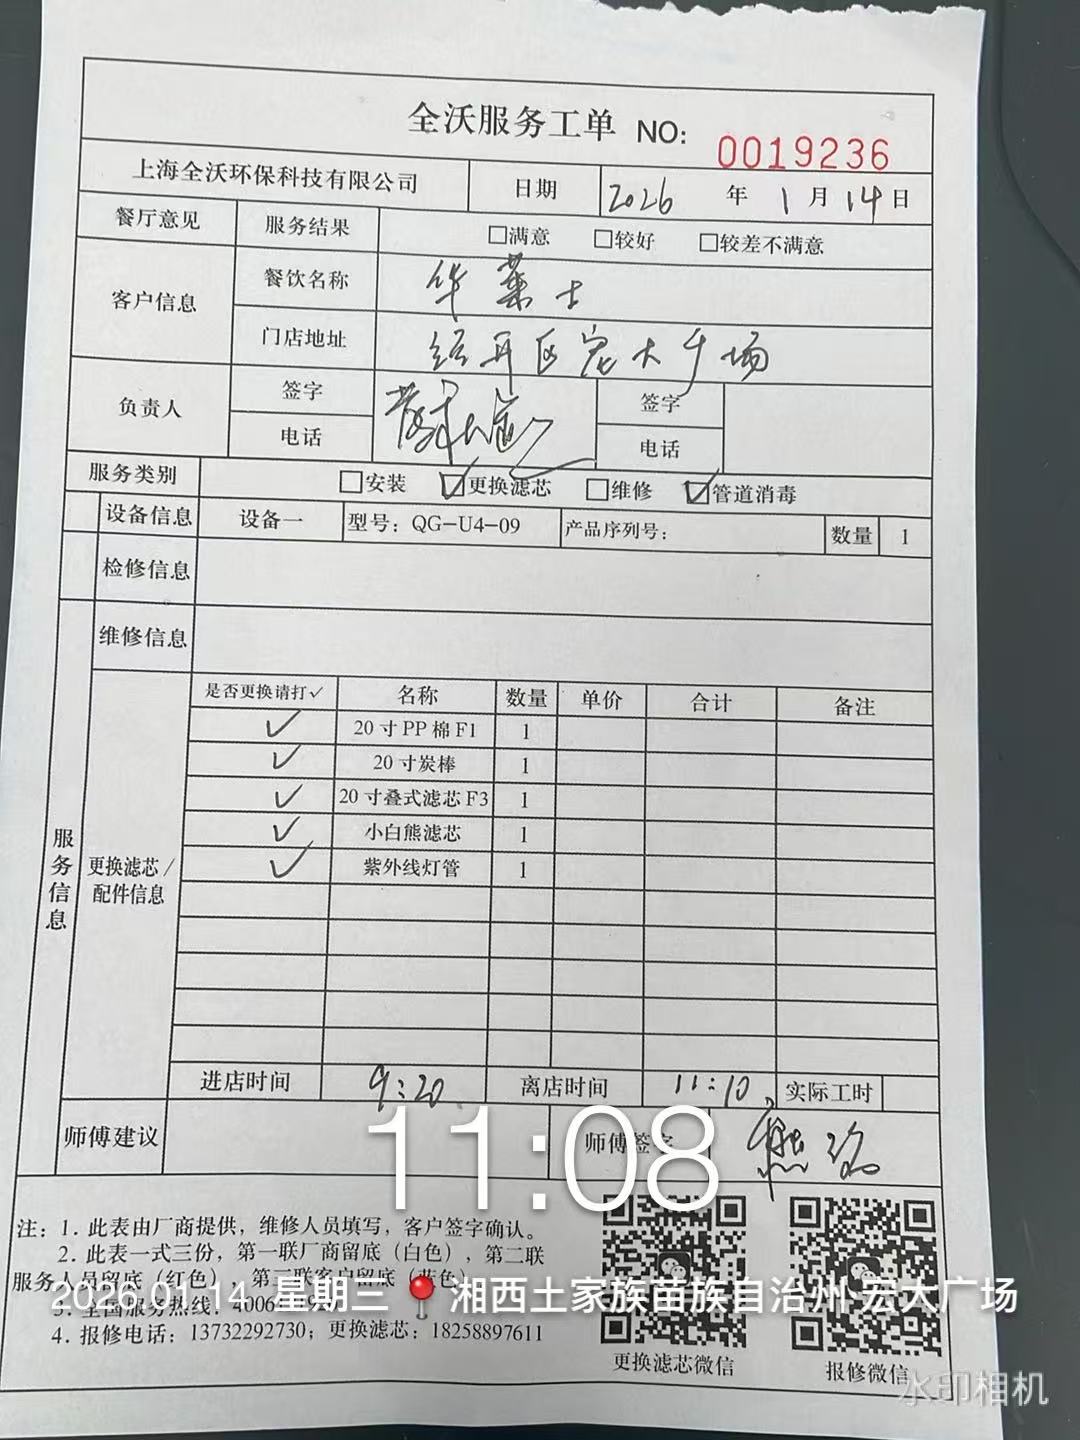 全沃服务工单 NO: 0019236
上海全沃环保科技有限公司 日期 2026 年 1 月 14 日
餐厅意见 服务结果 □满意 □较好 □较差不满意
客户信息 餐饮名称 华莱士
门店地址 经开区宏大广场
负责人 签字 签字
电话 电话
服务类别 □安装 ☑更换滤芯 □维修 ☑管道消毒
设备信息 设备一 型号: QG-U4-09 产品序列号: 数量 1
检修信息
维修信息
服务信息
更换滤芯/配件信息
是否更换请打✓ 名称 数量 单价 合计 备注
✓ 20寸PP棉F1 1
✓ 20寸炭棒 1
✓ 20寸叠式滤芯F3 1
✓ 小白熊滤芯 1
✓ 紫外线灯管 1
进店时间 9:20 离店时间 11:10 实际工时
师傅建议 师傅签字 熊
11:08
注: 1. 此表由厂商提供, 维修人员填写, 客户签字确认。
2. 此表一式三份, 第一联厂商留底 (白色), 第二联
服务人员留底 (红色), 第三联客户留底 (蓝色)
3. 全国服务热线: 4006
4. 报修电话: 13732292730; 更换滤芯: 18258897611
2026.01.14 星期三 📍 湘西土家族苗族自治州·宏大广场
更换滤芯微信 报修微信
水印相机